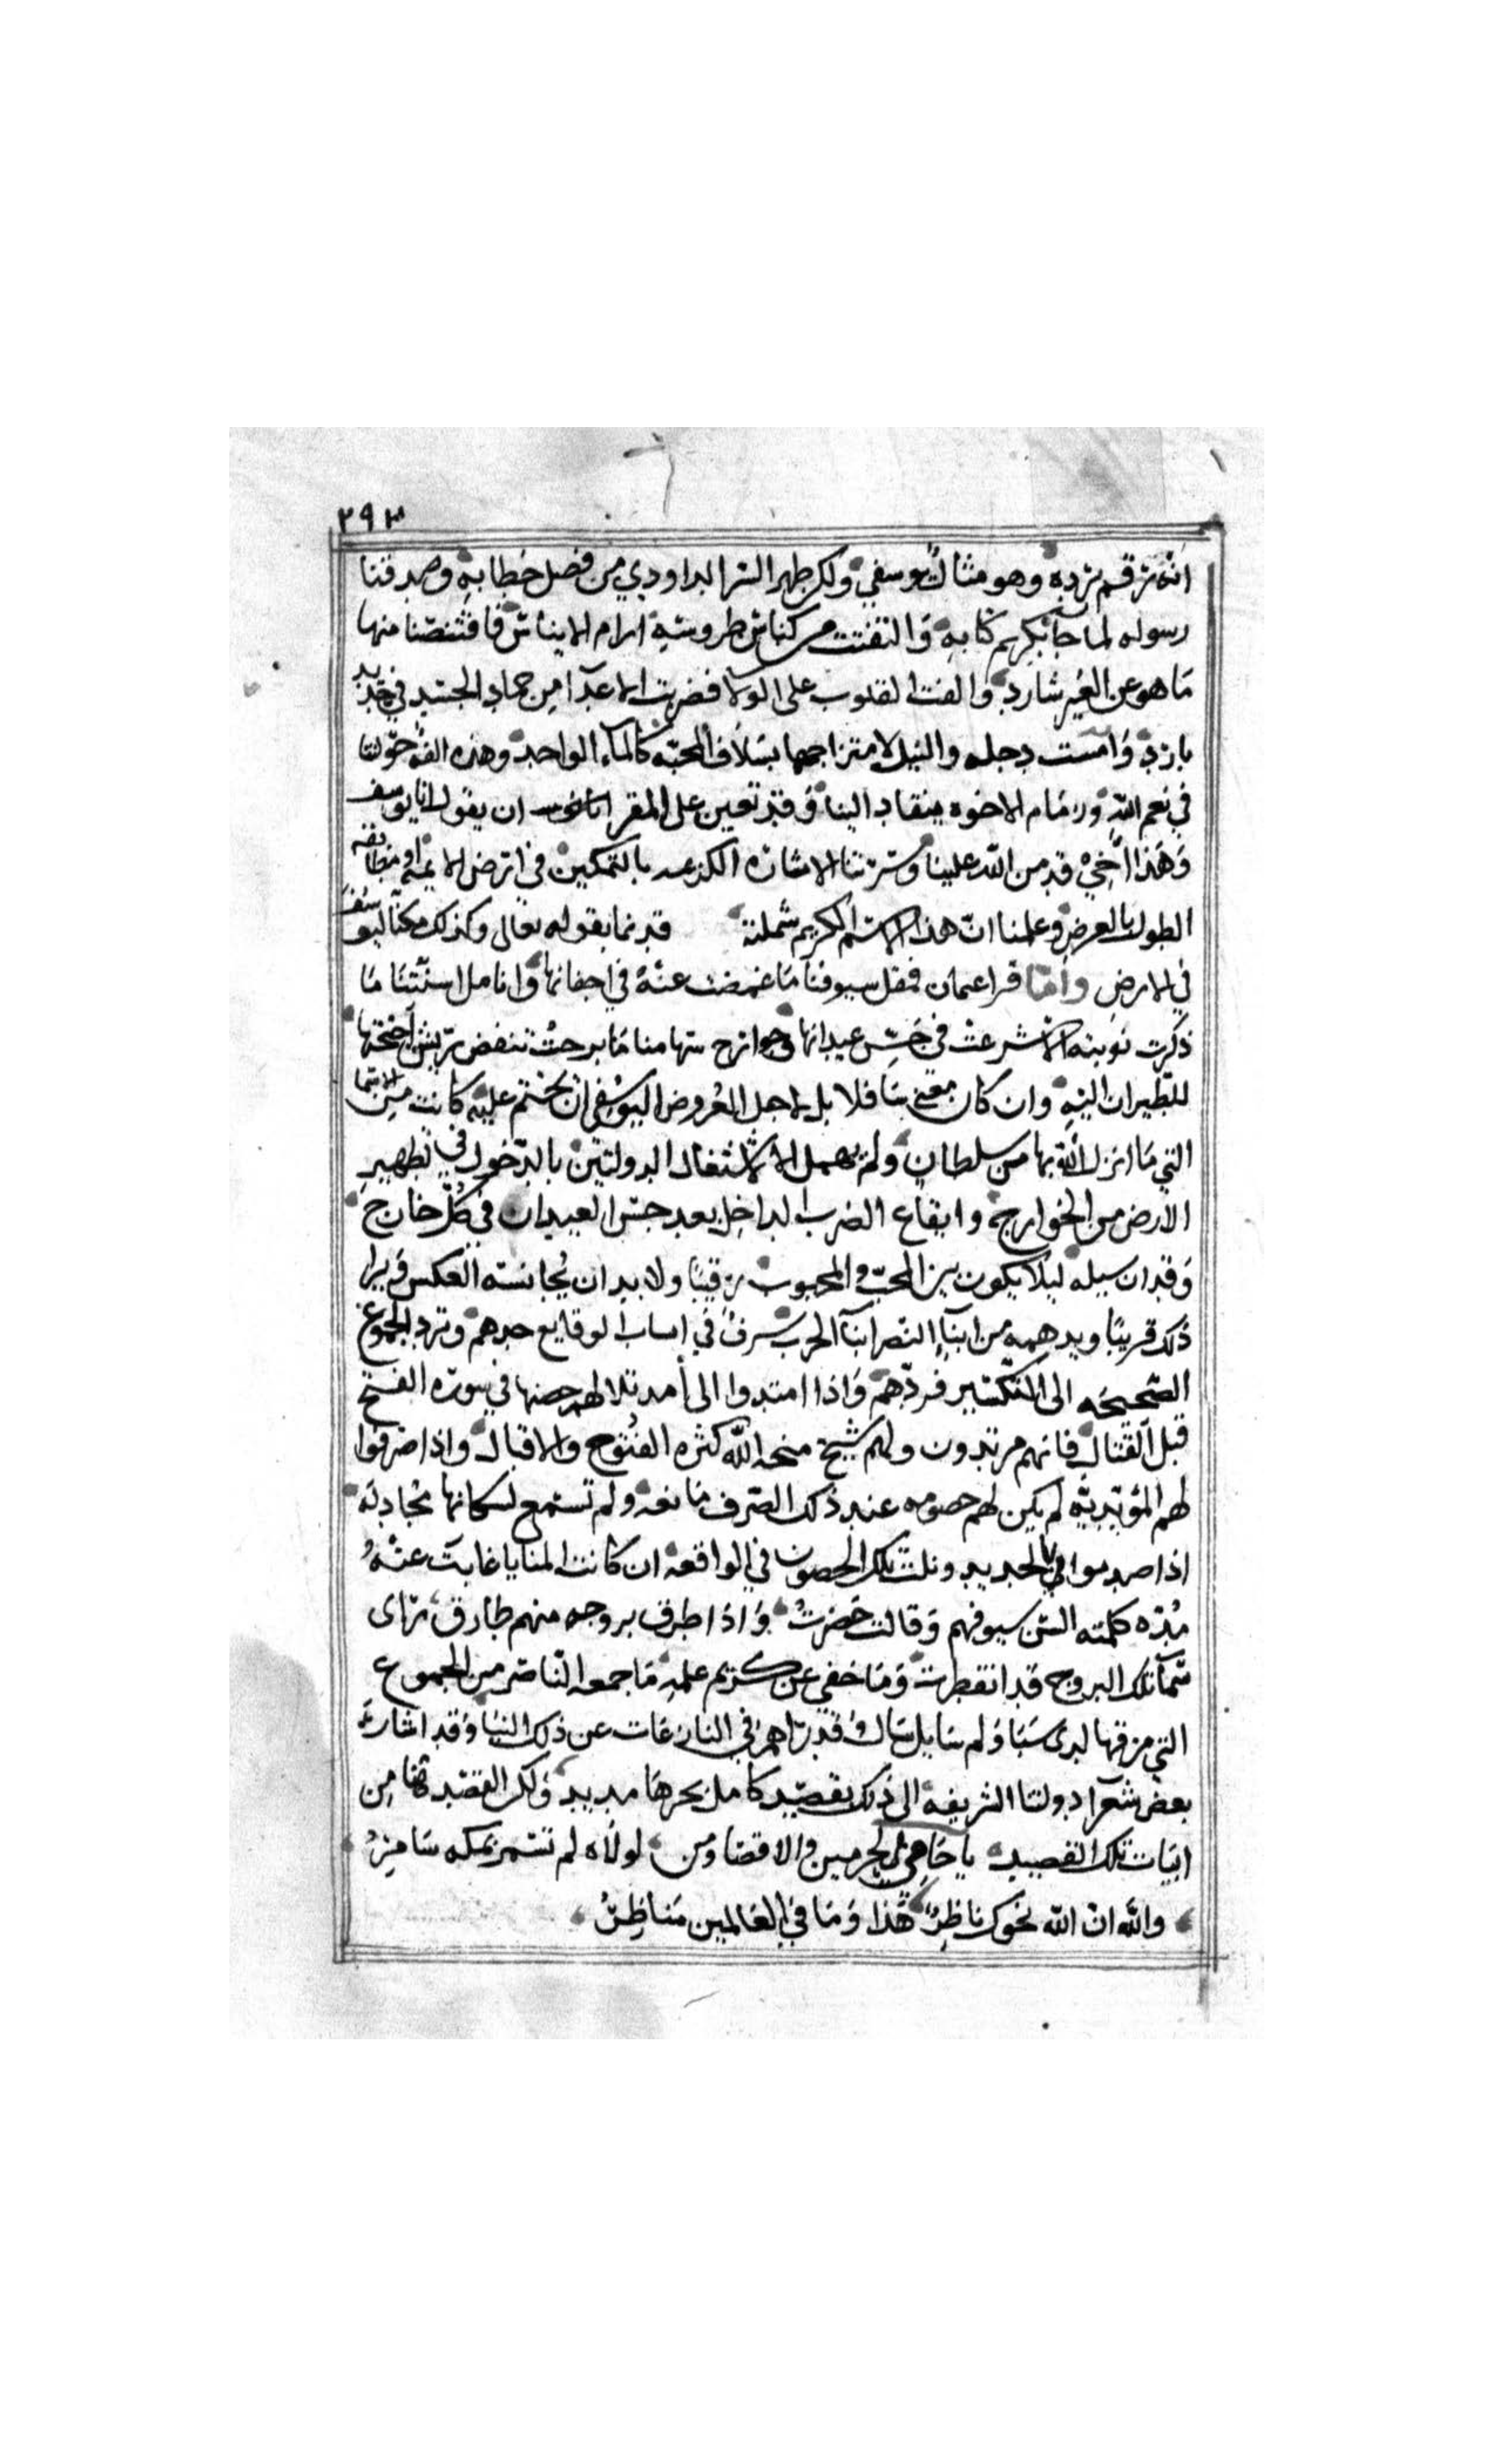 ٢٩٣
انه رقم برده وهو مثال يوسفي ولكن ظهر السر الداودي من فصل خطابه وصدقنا
رسوله لما جا بكريم كتابه والتفتت من كناس طروسه ارام الايناس فاقتنصنا منها
ما هو عن الغير شارد والفت القلوب على الولا فضربت الاعدا من جماد الجسد في حديد
بارد وامست دجله والنيل لامتزاجهما بسلاف المحبه كالماء الواحد وهذه الفة خولتنا
في نعم الله وزمام الاخوه ينقاد الينا وقد تعين على المقر ان يقول انا يوسف
وهذا اخي قد من الله علينا وسرتنا الاشاره الكريمه بالتمكين في ارض
الطول بالعرض وعلمنا ان هذا الاسم الكريم شملته قديما بقوله تعالى وكذلك مكنا ليوسف
في الارض واما قرا عثمان فمقل سيوفنا ما غمضت عنه في اجفانها وانامل اسنتنا ما
ذكرت نوبته الا شرعت في جس عيدانها وجوارح سهامنا ما برحت تنفض ريش اجنحتها
للطيران اليه وان كان معنى سافلا بل لاجل الغرض اليوسفي ان يختم عليه كانت من الاسما
التي ما انزل الله بها من سلطان ولم يهمل الا لاشتغال الدولتين بالدخول في تطهير
الارض من الخوارج وايقاع الضرب الداخل بعد جس العيدان في كل خارج
وقد ان سبيله ليلا يكون بين المحب والمحبوب رقيبا ولا بد ان يجانسه العكس ويرا
ذلك قريبا ويدهمه من ابنآ النصر ابنآ الحرب في الوقايع حدهم وترد الجموع
الصحيحه الى التكسير فردهم واذا امتدوا الى أمد تلا لهم حصنها في سوره الفتح
قبل القتال فانهم مرتدون ولهم شيخ منحه الله كثره الفتوح والاقبال واذا صرفوا
لهم المؤيديه لم يكن لهم حصومه عند ذلك الصرف مانعه ولم تسمع لسكانها مجادله
اذا صدموا في الحديد وتلت تلك الحصون في الواقعه ان كانت المنايا غابت عنه
مده كلمته السن سيوفهم وقالت حضرت واذا طرق بروجه منهم طارق راى
سمآ تلك البروج قد انفطرت وما خفي عن كريم علمه ما جمعه الناصر من الجموع
التي مزقها لدى سبا ولم سايل سال وقد راهم في النازعات عن ذلك النبا وقد اشار
بعض شعرآ دولتنا الشريفه الى ذلك بقصيد كامل بحرها مديد ولكن القصد هنا من
ابيات تلك القصيد يا حامي الحرمين والاقصا ومن لولاه لم تسمر بمكه سامر
والله ان الله نحوك ناظر هذا وما في العالمين مناظر